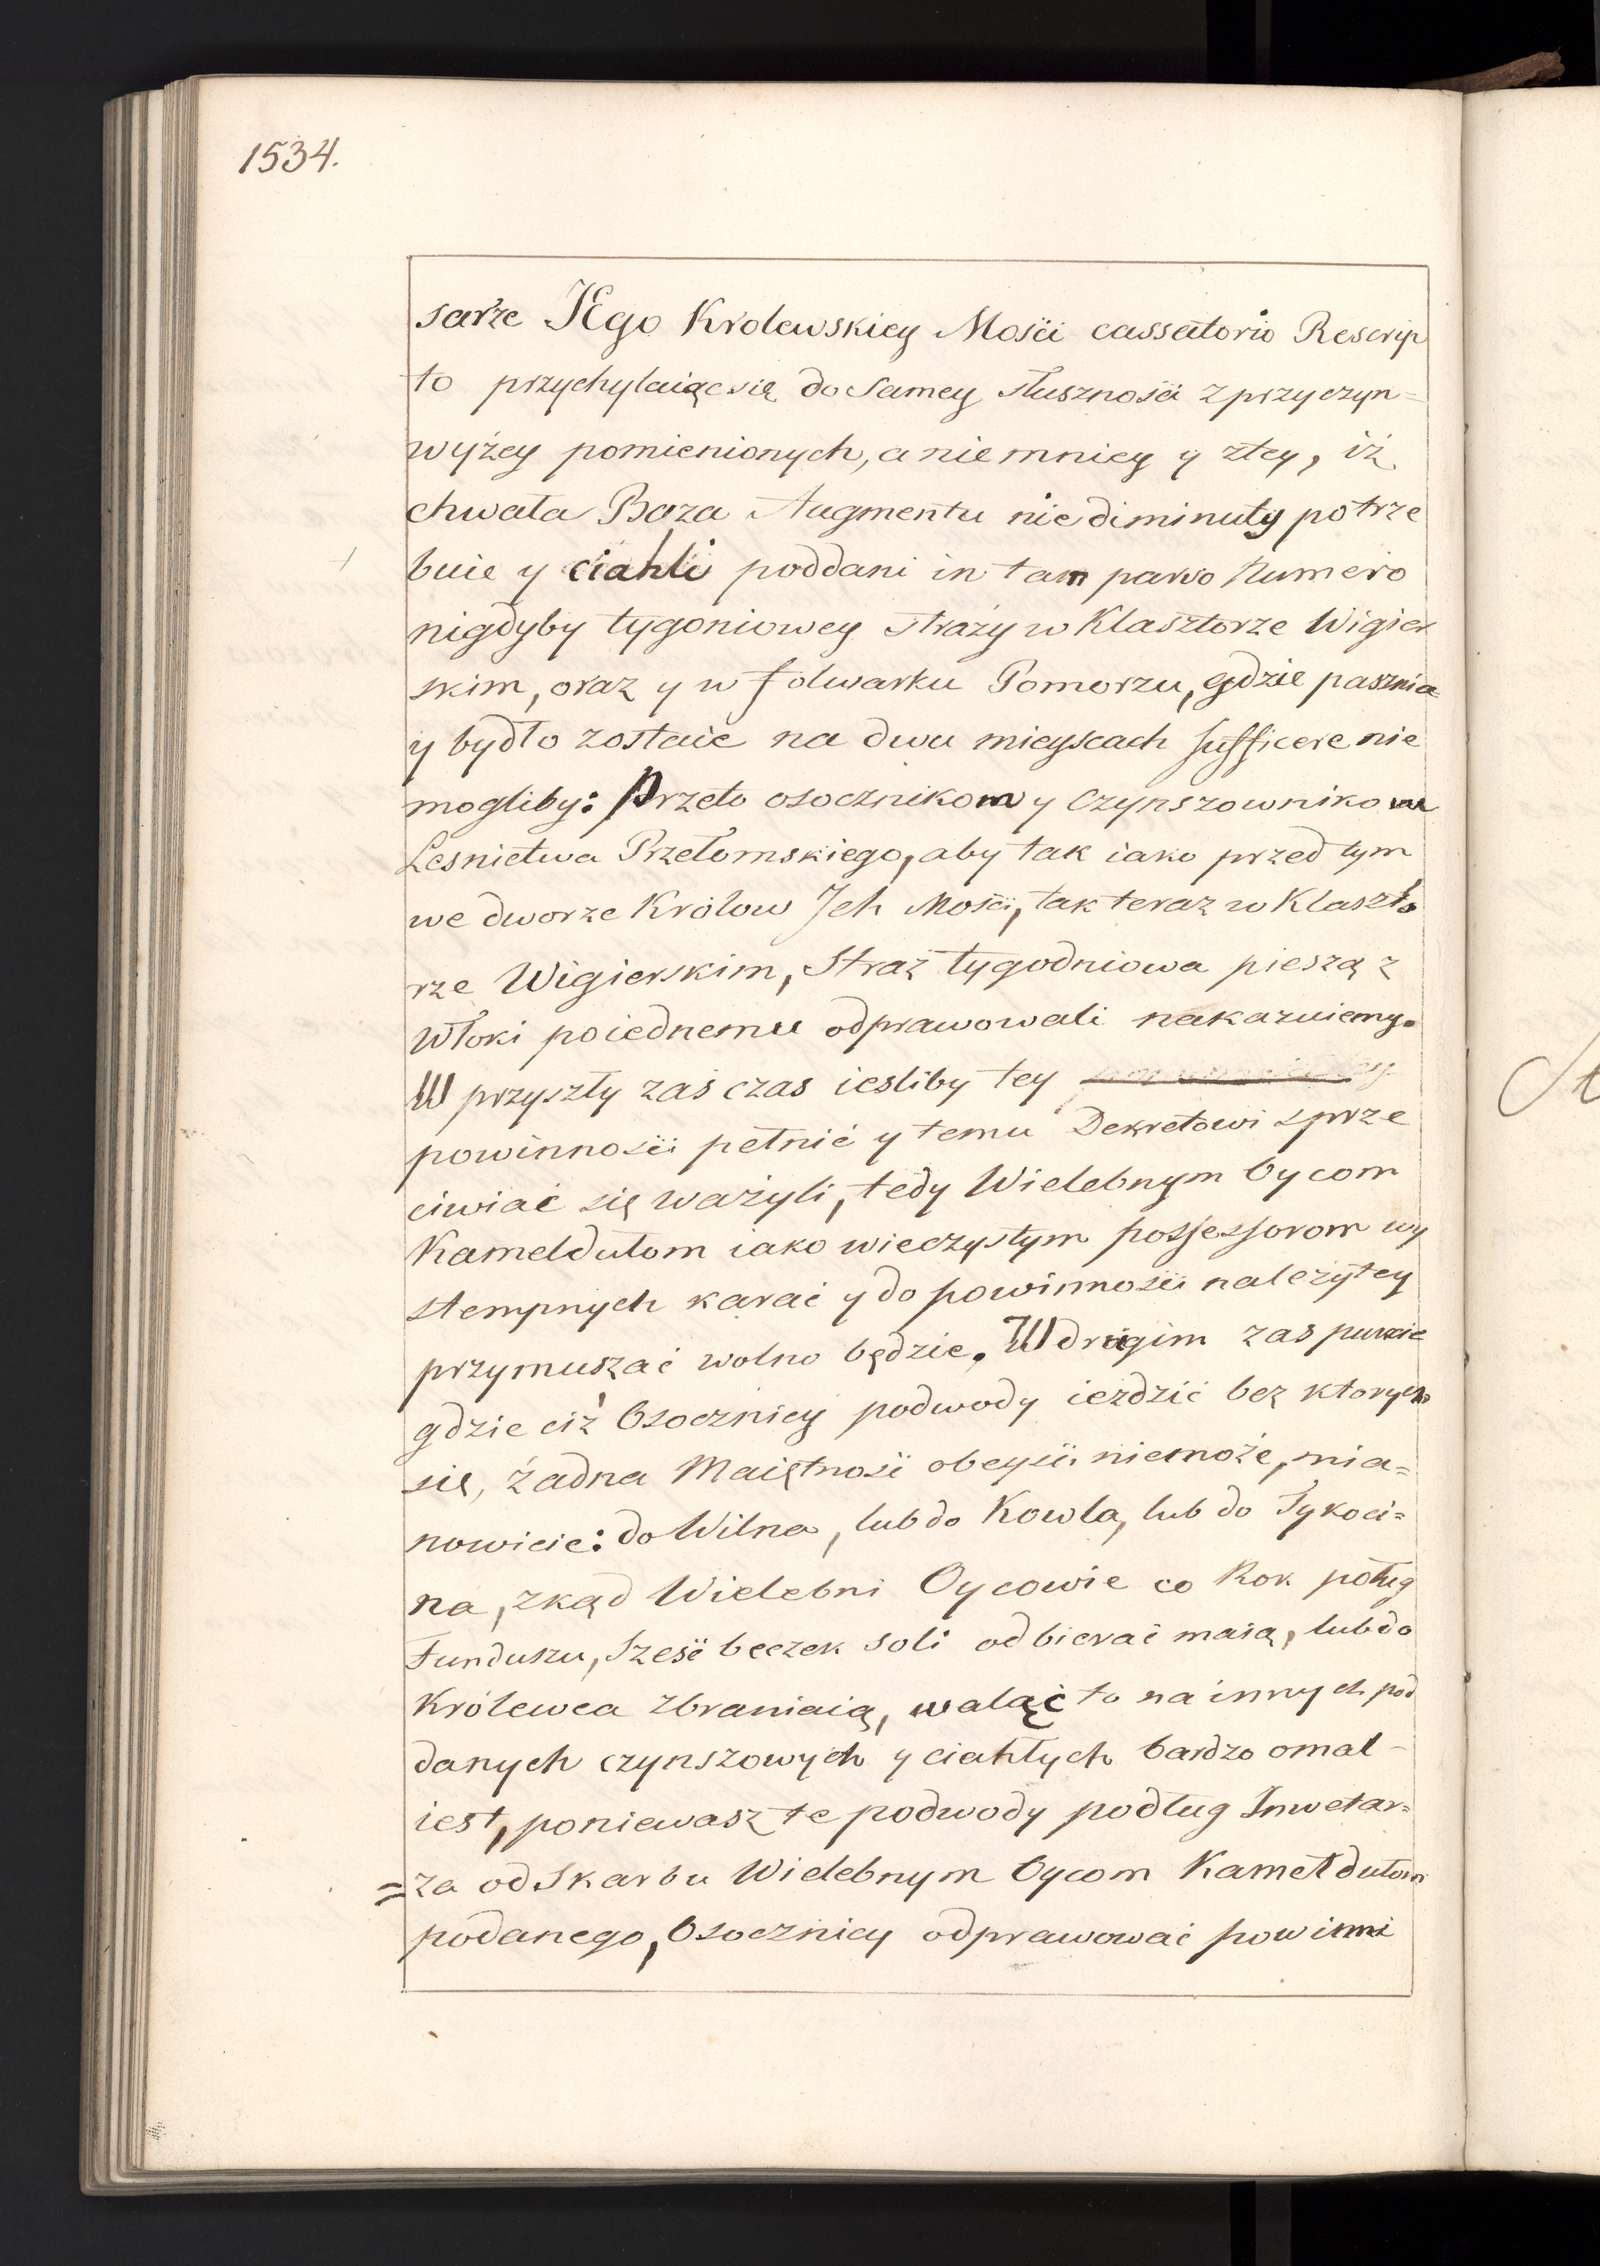 1534.
sarze JEgo Krolewskiey Mosći cassatorio Rescrip
to przychylaiąc się do Samey słusznosći z przyczyn=
wyżey pomienionych, a niemniey y ztey, iż
chwała Boza Augmentu nie diminuty potrze
buie y ciahli poddani in tam parvo Numero
nigdyby tygoniowey straży w Klasztorze Wigier
skim, oraz y w folwarku Pomorzu, gdzie pasznia
y bydło zostaie na dwu mieyscach sufficere nie
mogliby: Przeto osocznikom y Czynszownikom
Lesnictwa Przełomskiego, aby tak iako przed tym
we dworze Królow Jch Mośći, tak teraz w Klaszto
rze Wigierskim, Straż tygodniowa pieszą z
Włoki poiednemu odprawowali nakazuiemy.
W przyszły zaś czas iesliby tey
powinnosći pełnić y temu Dekretowi sprze
ciwiać się ważyli, tedy Wielebnym Oycom
Kameldułom iako wieczystym possessorom wy
stempnych karać y do powinnosći należytey
przymuszać wolno będzie. W drugim zas punkcie
gdzie ciż Osocznicy podwody iezdzić bez ktorych
się, żadna Maiętnosć obeysći niemoże, mia=
nowicie: do Wilna, lub do Kowla, lub do Tykoci=
na, zkąd Wielebni Oycowie co Rok poług
Funduszu, Szesć beczek soli odbierać maią, lub do
Królewca zbraniaią, waląć to na innych pod
danych czynszowych y ciahłych bardzo omal-
iest, poniewasz te podwody podług Inwetar=
=za od Skarbu Wielebnym Oycom Kamełdułom
podanego, Osocznicy odprawować powinni